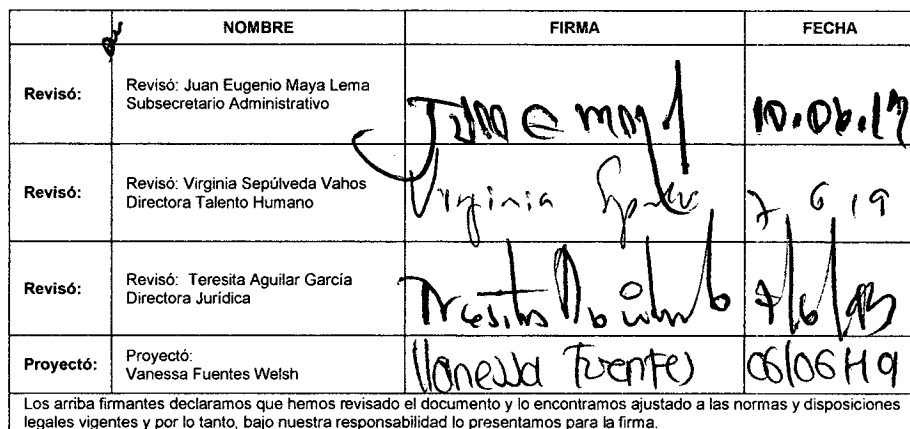 NOMBRE FIRMA FECHA
Revisó: Revisó: Juan Eugenio Maya Lema
Subsecretario Administrativo
Revisó: Revisó: Virginia Sepúlveda Vahos
Directora Talento Humano
Virginia 7 6 19
Revisó: Revisó: Teresita Aguilar García
Directora Jurídica
Proyectó: Proyectó:
Vanessa Fuentes Welsh
Vanessa Fuentes 06/06/19
Los arriba firmantes declaramos que hemos revisado el documento y lo encontramos ajustado a las normas y disposiciones
legales vigentes y por lo tanto, bajo nuestra responsabilidad lo presentamos para la firma.